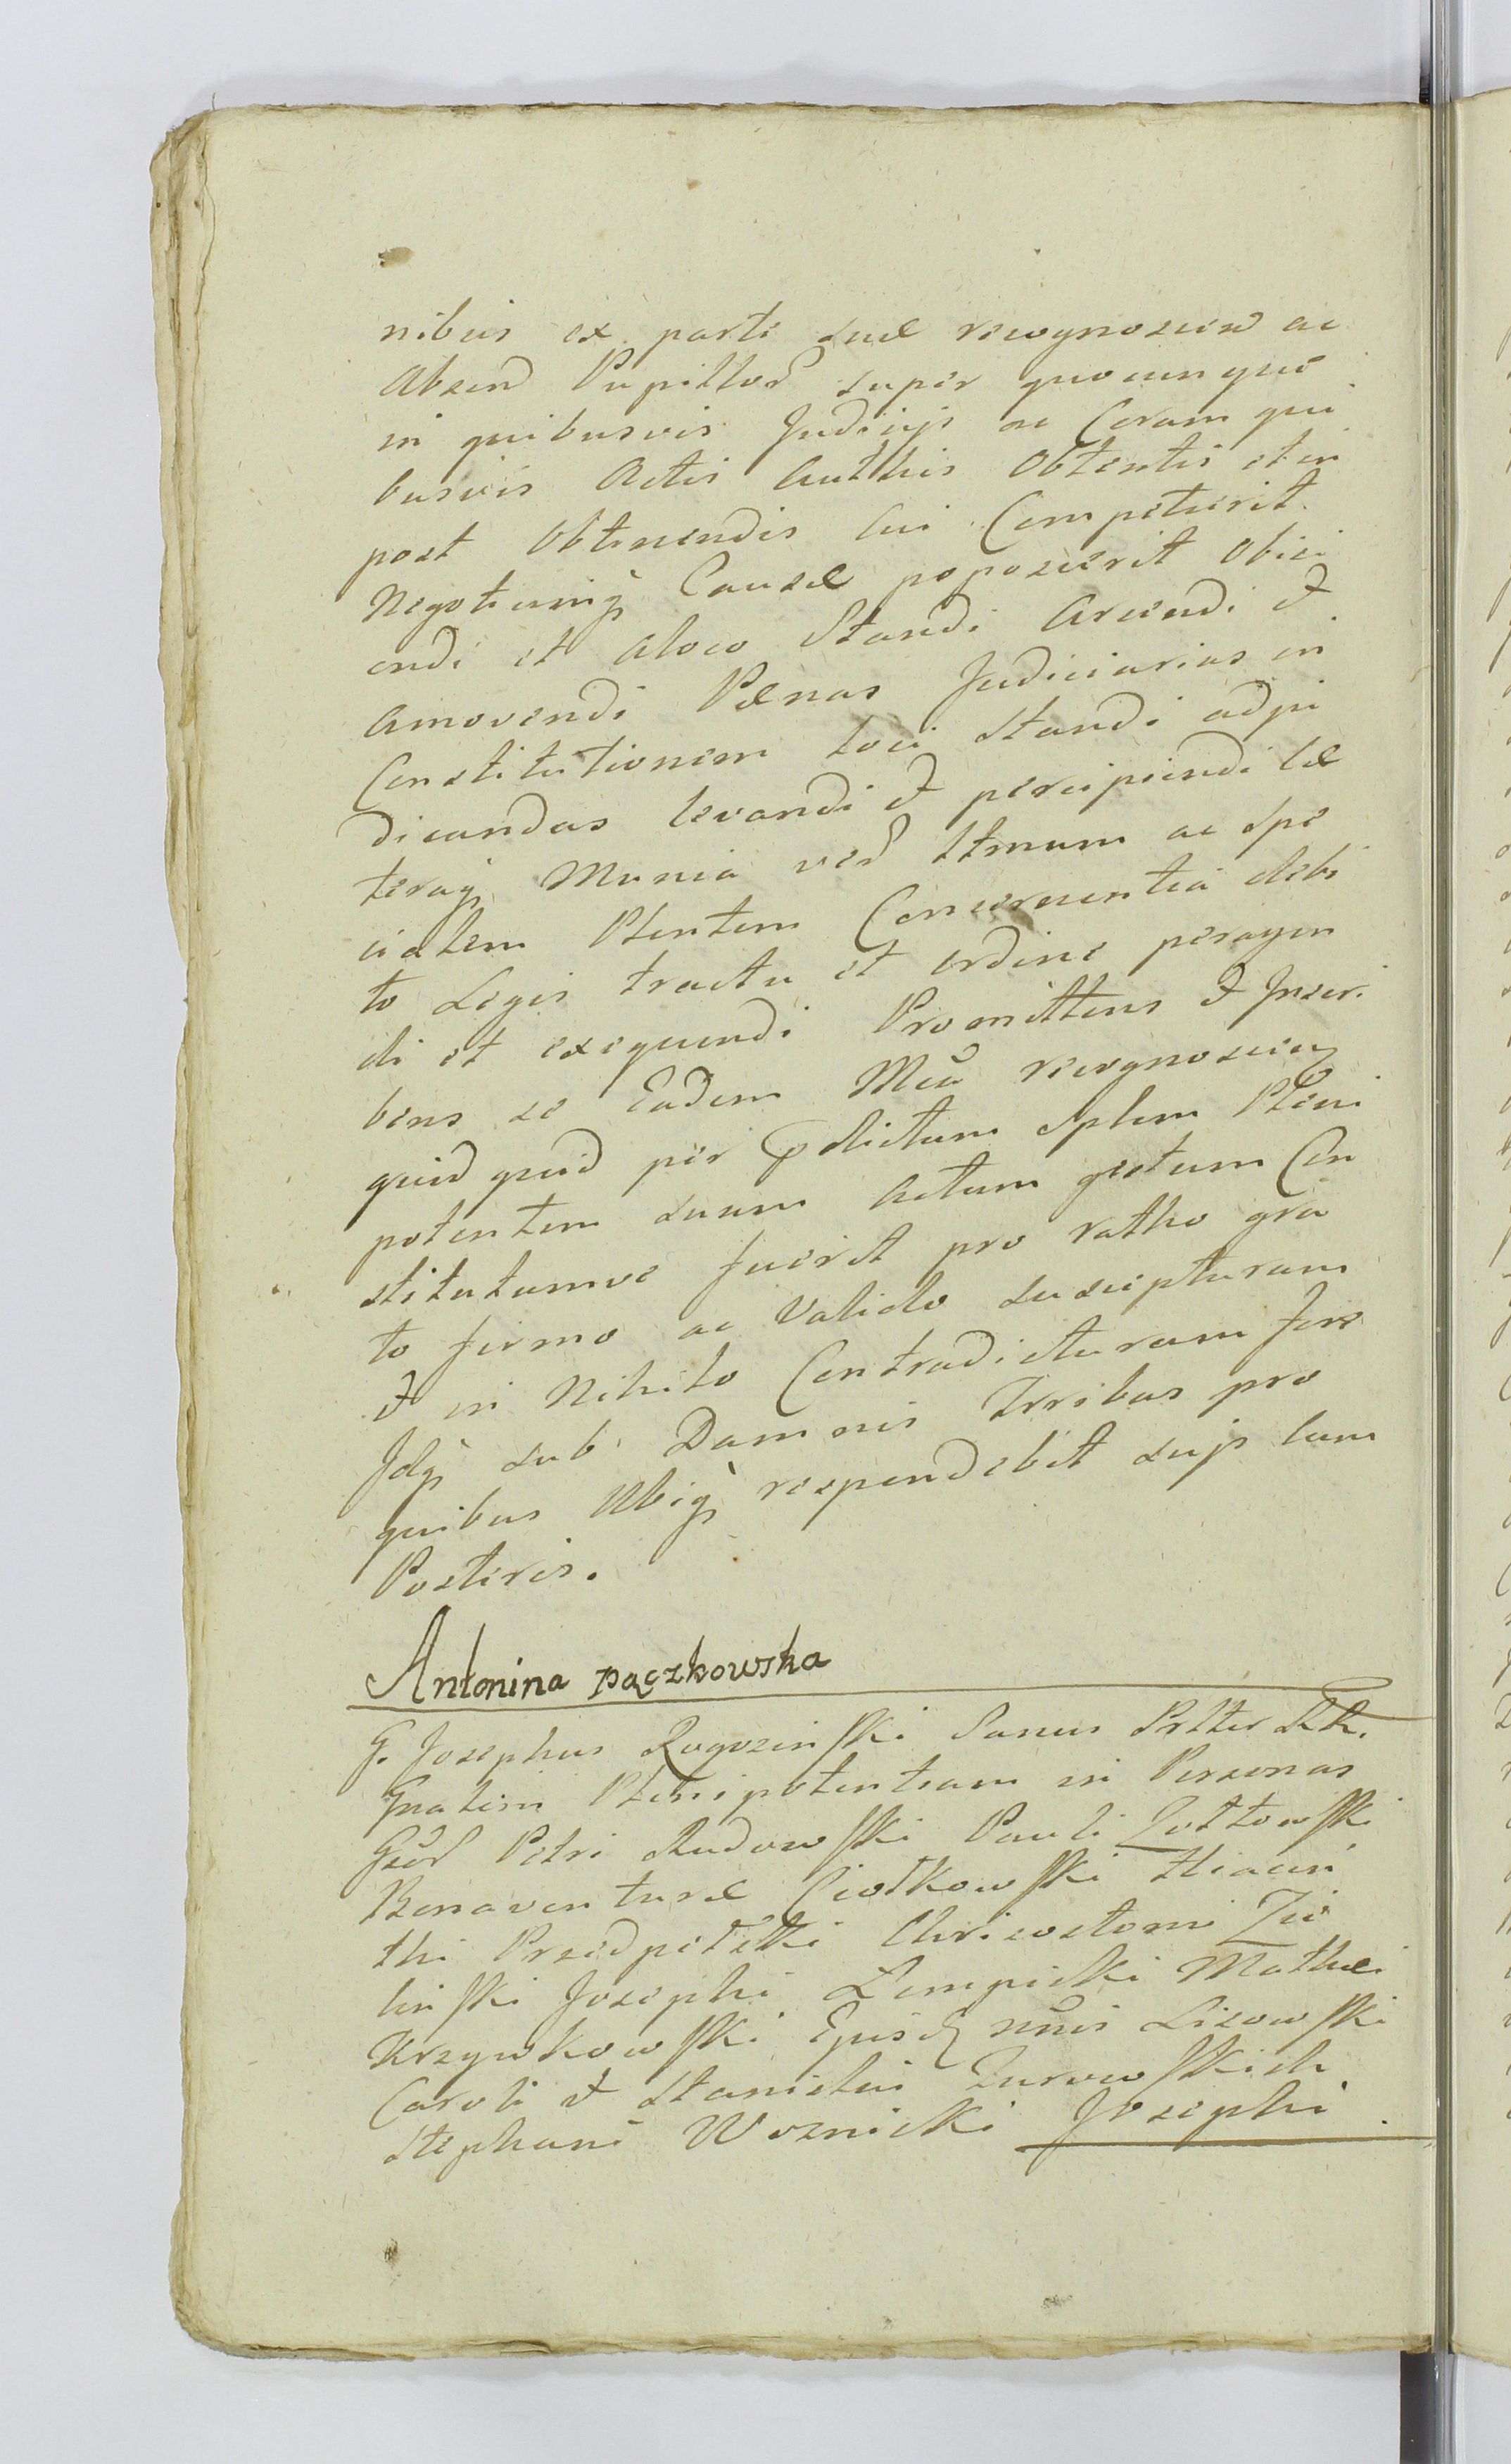 nibus ex parte suæ recognoscen ac
Absend Pupillor super quocunque
in quibusvis Judicijs ac Coram qui
busvis Actis Authis Obtentis et in
post Obtinendis cui Competierit
Negotiumq Causæ poposcierit Obici
endi et aloco Standi Arcendi et
Amovendi Pænas Judiciarias in
Constitutionem Loci Standi adju
dicandas levandi et percipiendi Cæ
teraq Munia ver ttmum ac Spe
cialem Plentem Concernentia debi
to Legis tractu et ordine peragen
di et exequendi Promittens et Inscri
bens se Eadem Mca recognoscens
quid quid per prdictum Splem Pleni
potentem suum Actum gestum Con
stitutumve fuerit pro ratho gra
to firmo ac Valido suscepturam
et in Nihilo Contradicturam fore
Idq sub Damnis Trribus pro
quibus Ubiq respondebit suis cum
Posteris.
Antonina pączkowska
G. Josephus Rogozinski Sanus Prltter Rk.
Gnalem Plenipotentiam in Personas
Gsor Petri Rudowski Pauli Żołtowski
Bonaventuræ Ciołkowski Hiacin
thi Przedpełski Chrisostomi Zie
linski Josephi Lempicki Mathæi
Krzywkowski Lisowski
Caroli et Stanislai Zurowskich
Stephani Woznicki Josephi